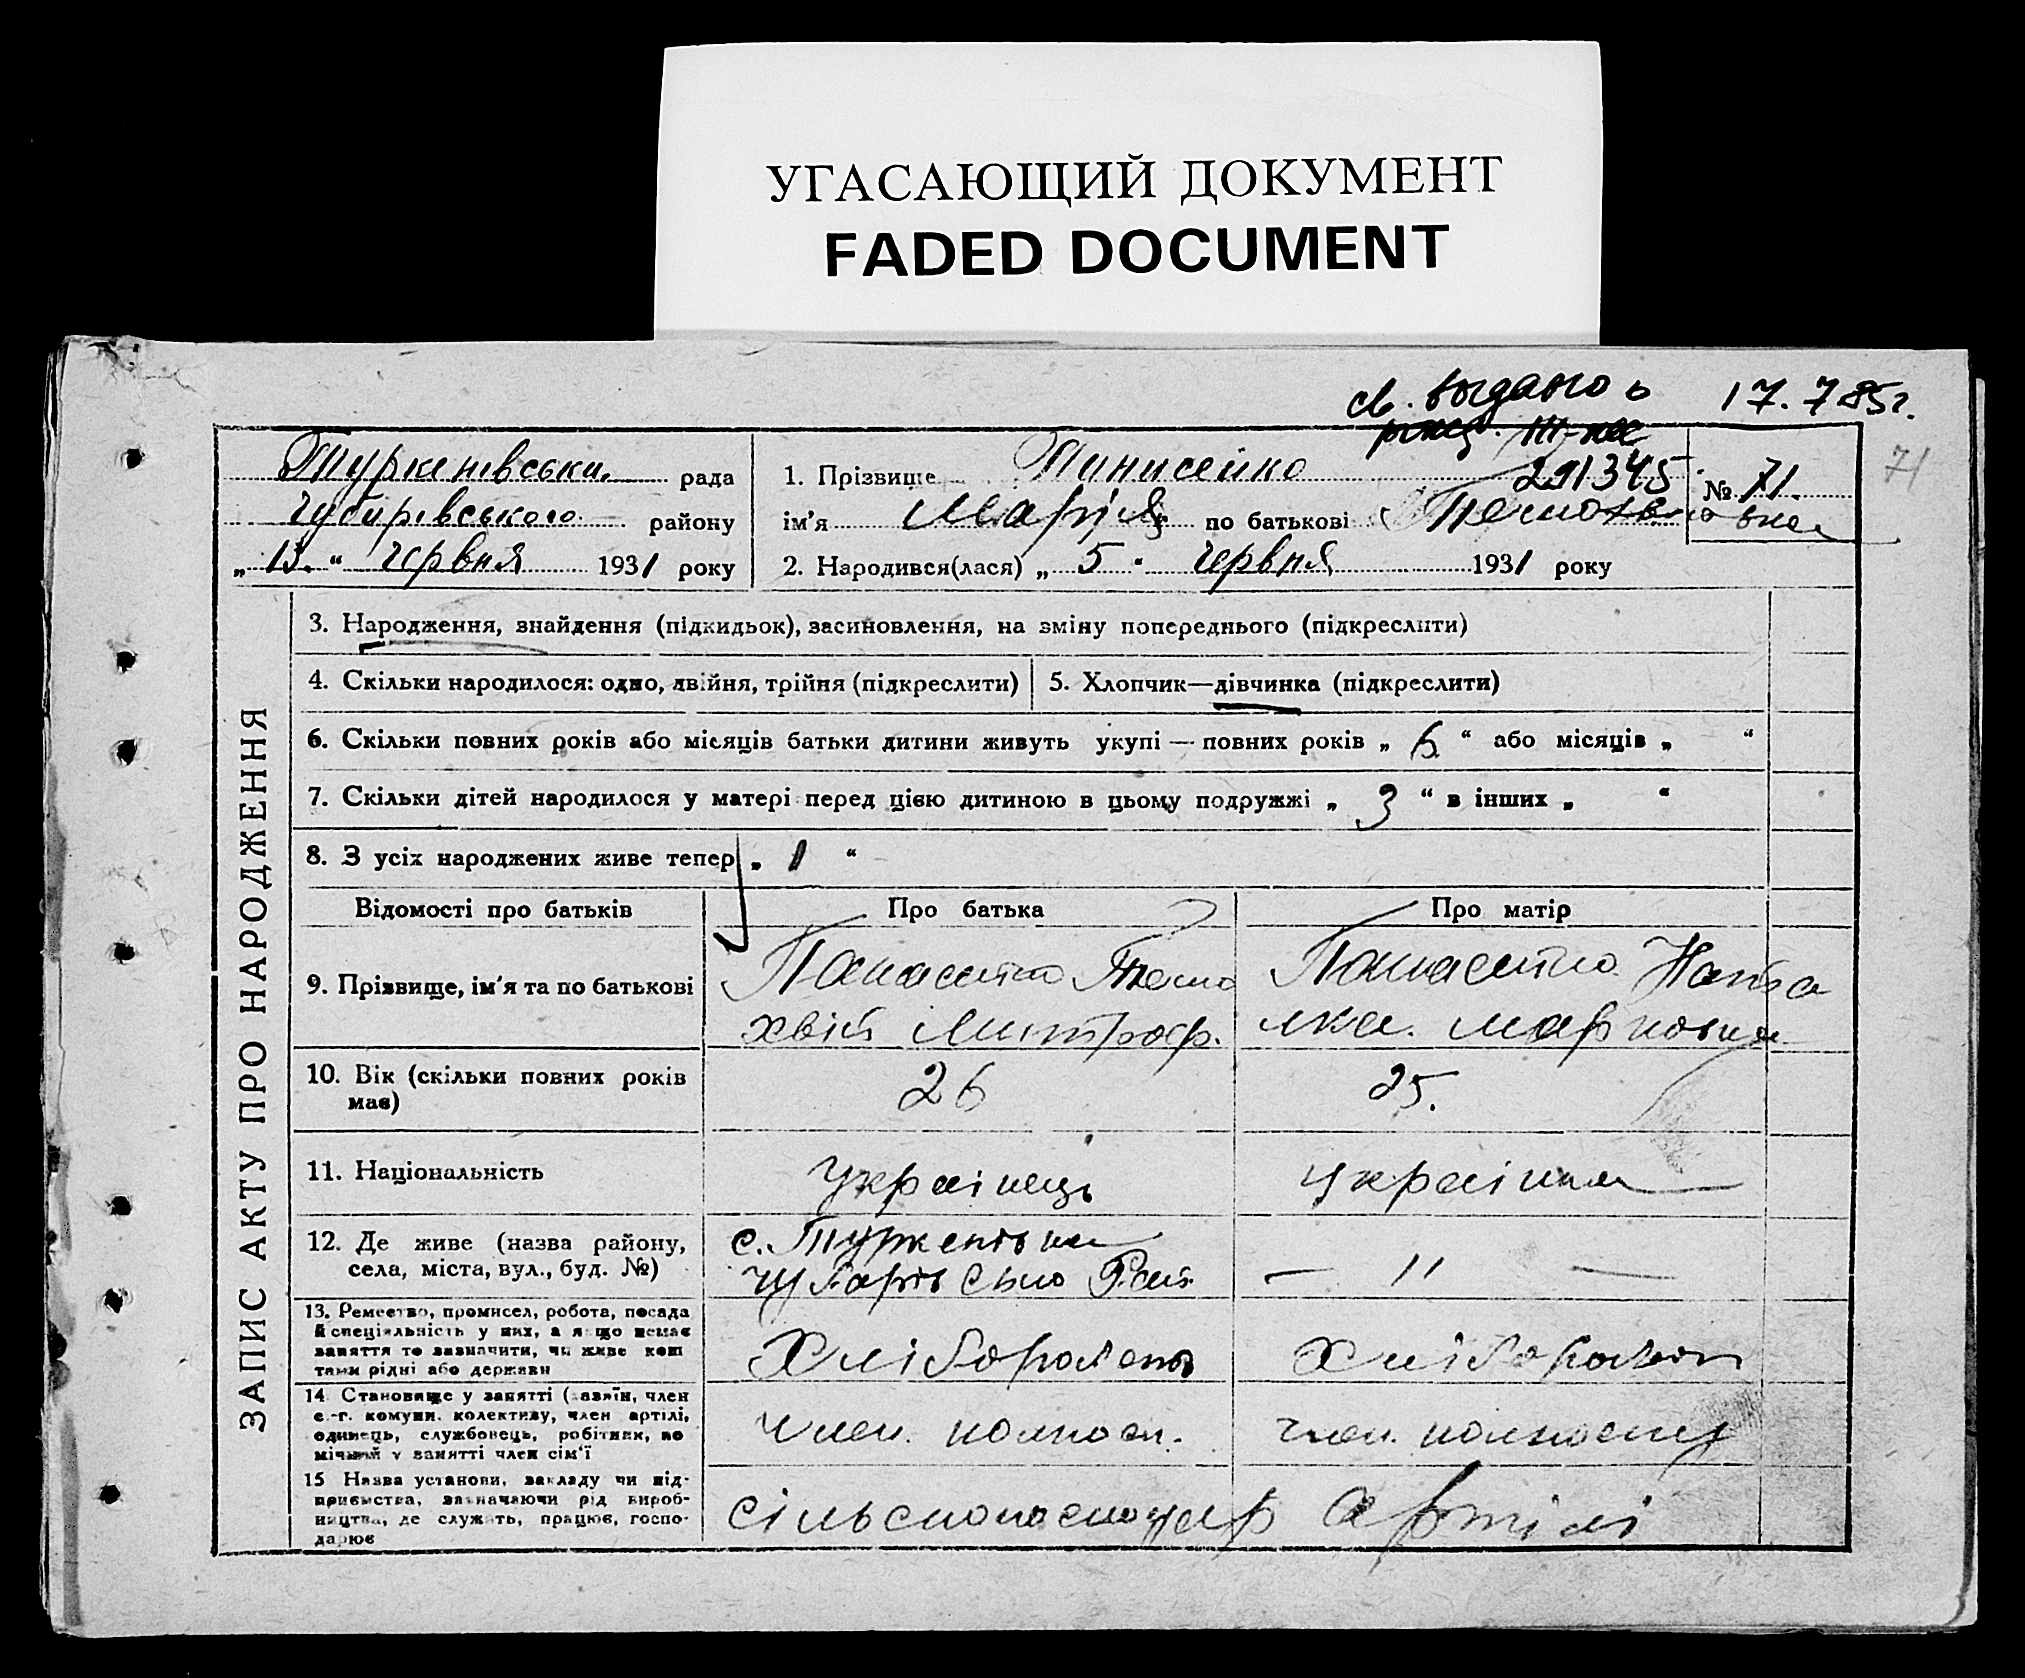 УГАСАЮЩИЙ ДОКУМЕНТ
FADED DOCUMENT
св. выдано 17.7 85г.
III-
291345
71
Туркенівська рада
Чубарівського району
„ 13. “ червня 1931 року
1. Прізвище Панасенко
№ 71.
ім'я Марія по батькові Темохвіовна
2. Народився(лася) „ 5 “ червня 1931 року
ЗАПИС АКТУ ПРО НАРОДЖЕННЯ
3. Народження, знайдення (підкидьок), засиновлення, на зміну попереднього (підкреслити)
4. Скільки народилося: одно, двійня, трійня (підкреслити) 5. Хлопчик—дівчинка (підкреслити)
6. Скільки повних років або місяців батьки дитини живуть укупі — повних років „ 6 “ або місяців „ “
7. Скільки дітей народилося у матері перед цією дитиною в цьому подружжі „ 3 “ в інших „ “
8. З усіх народжених живе тепер „ 1 “
Відомості про батьків Про батька Про матір
9. Прізвище, ім'я та по батькові
Панасенко Темо
хвій Митроф.
Панасенко Ната
лка. Марковна
10. Вік (скільки повних років
має)
26
25.
11. Національність
Українець
Українка
12. Де живе (назва району,
села, міста, вул., буд. №)
с. Туркенівка
Чубарівсько Рай.
— 〃 —
13. Ремество, промисел, робота, посада
й спеціяльність у них, а якщо немає
заняття то зазначити, чи живе кош
тами рідні або держави
Хлібороб
Хлібороб
14 Становище у занятті (хазяїн, член
с.-г. комуни, колективу, член артілі,
одинець, службовець, робітник, по
мічний у занятті член сім'ї
член. колгосп.
член. колгоспу
15 Назва установи, закладу чи під-
приємства, зазначаючи рід вироб-
ництва, де служить, працює, госпо-
дарює
сільскогосподар артілі